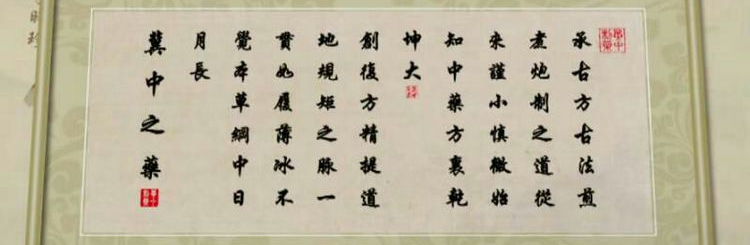 承古方古法煎
煮炮制之道從
来謹小慎微始
知中藥方裏乾
坤大
創復方精提道
地規矩之脉一
貫如履薄冰不
覺本草綱中日
月長
冀中之藥